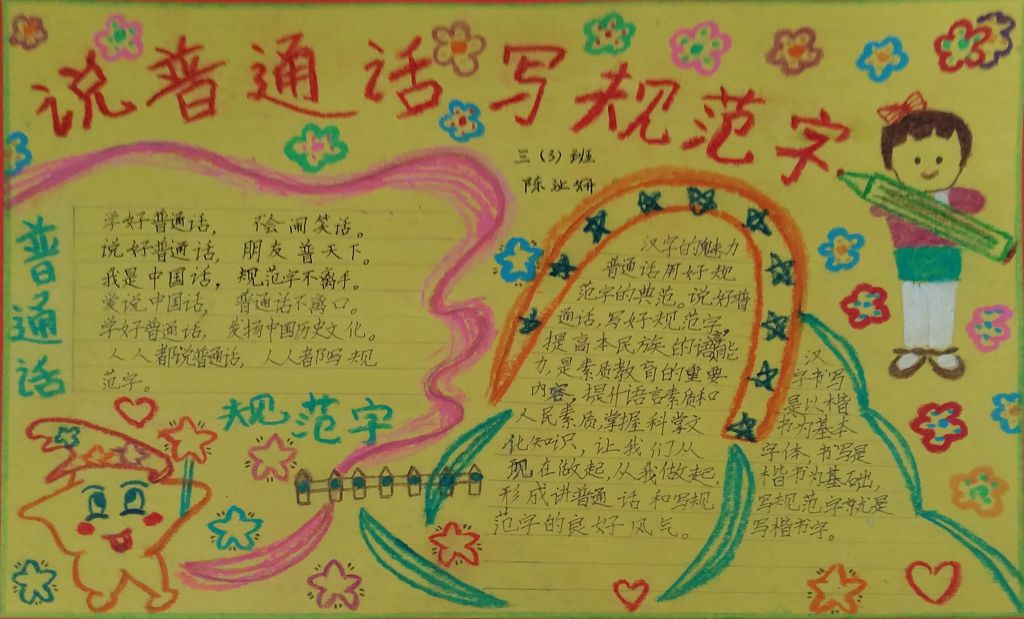 说普通话写规范字
三(3)班
普通话
学好普通话, 会闹笑话。
说好普通话, 朋友普天下。
我是中国话, 规范字不离手。
爱说中国话, 普通话不离口。
学好普通话, 发扬中国历史文化。
人人都说普通话, 人人都写规
范字。
规范字
汉字的魅力
普通话用好规
范字的典范。说好普
通话,写好规范字,
提高本民族的语言能
力,是素质教育的重要
内容,提升语言素质和
人民素质,掌握科学文
化知识,让我们从
现在做起,从我做起,
形成讲普通话和写规
范字的良好风气。
汉
字书写
是以楷
书为基本
字体,书写是
楷书为基础,
写规范字就是
写楷书字。